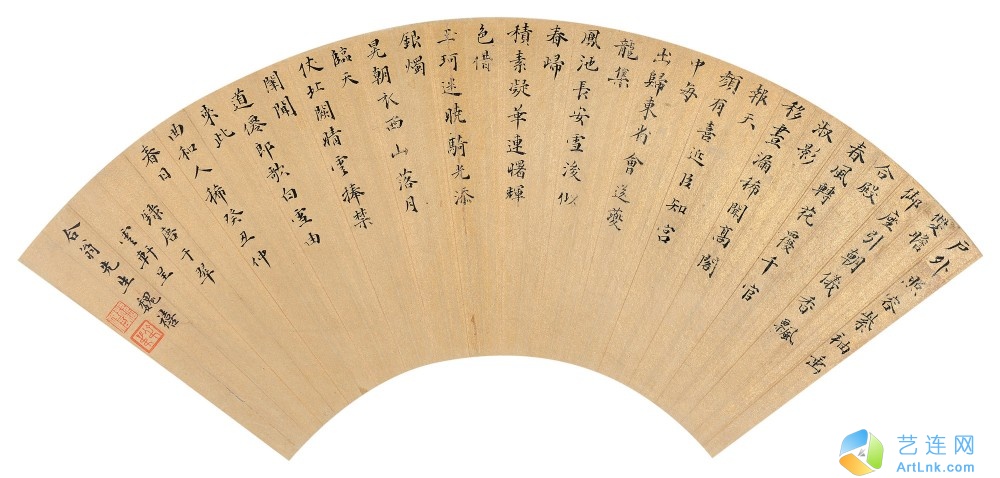 戶外昭容紫袖垂
雙瞻
御座引朝儀香飄
合殿
春風轉花覆千官
淑影
移晝漏稀聞高閣
報天
顏有喜近臣知宮
中每
出歸東省會送夔
龍集
鳳池長安雪後似
春歸
積素凝華連曙輝
色借
玉珂迷曉騎光添
銀燭
晃朝衣西山落月
臨天
仗北闕晴雲捧禁
闈聞
道僊郎歌白雪由
來此
曲和人稀癸丑仲
春日
錄唐于翠
雲軒呈
合翁先生 魏禧
艺连网
ArtLnk.com